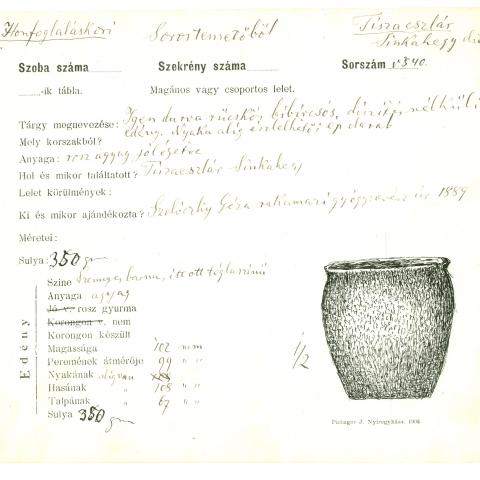 Honfoglaláskori Sorostemetőből Tiszaeszlár
Sinkahegy
Szoba száma Szekrény száma Sorszám 1340.
-ik tábla. Magános vagy csoportos lelet.
Tárgy megnevezése: Igen durva rücskös bibircsós, díszítés nélküli
edény. Nyaka alig észlelhető; ép darab
Mely korszakból?
Anyaga: rosz agyag jól égetve
Hol és mikor találtatott? Tiszaeszlár Sinkahegy
Lelet körülmények:
Ki és mikor ajándékozta? Szelóczky Géza rakamazi gyógyszerész úr 1889
Méretei:
Sulya: 350 gm
Edény
Szine Szennyes barna, itt ott téglaszinű
Anyaga agyag
Jó v. rosz gyurma
Korongon v. nem
Korongon készült
Magassága 102 mm
Peremének átmérője 99 " "
Nyakának alig van
Hasának " 108 " "
Talpának " 67 " "
Sulya 350 gm
1/2
Piringer J. Nyiregyháza. 1906